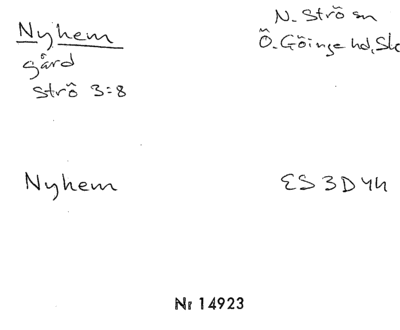 Nyhem
gård
Strö 3:8
N. Strö sn
Ö. Göinge hd, Sk
Nyhem
ES 3D 4h
Nr 14923